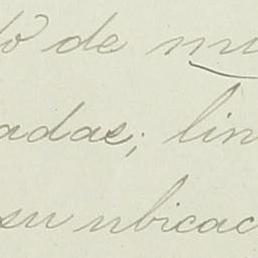 do de mu
adas; lin
su ubicac